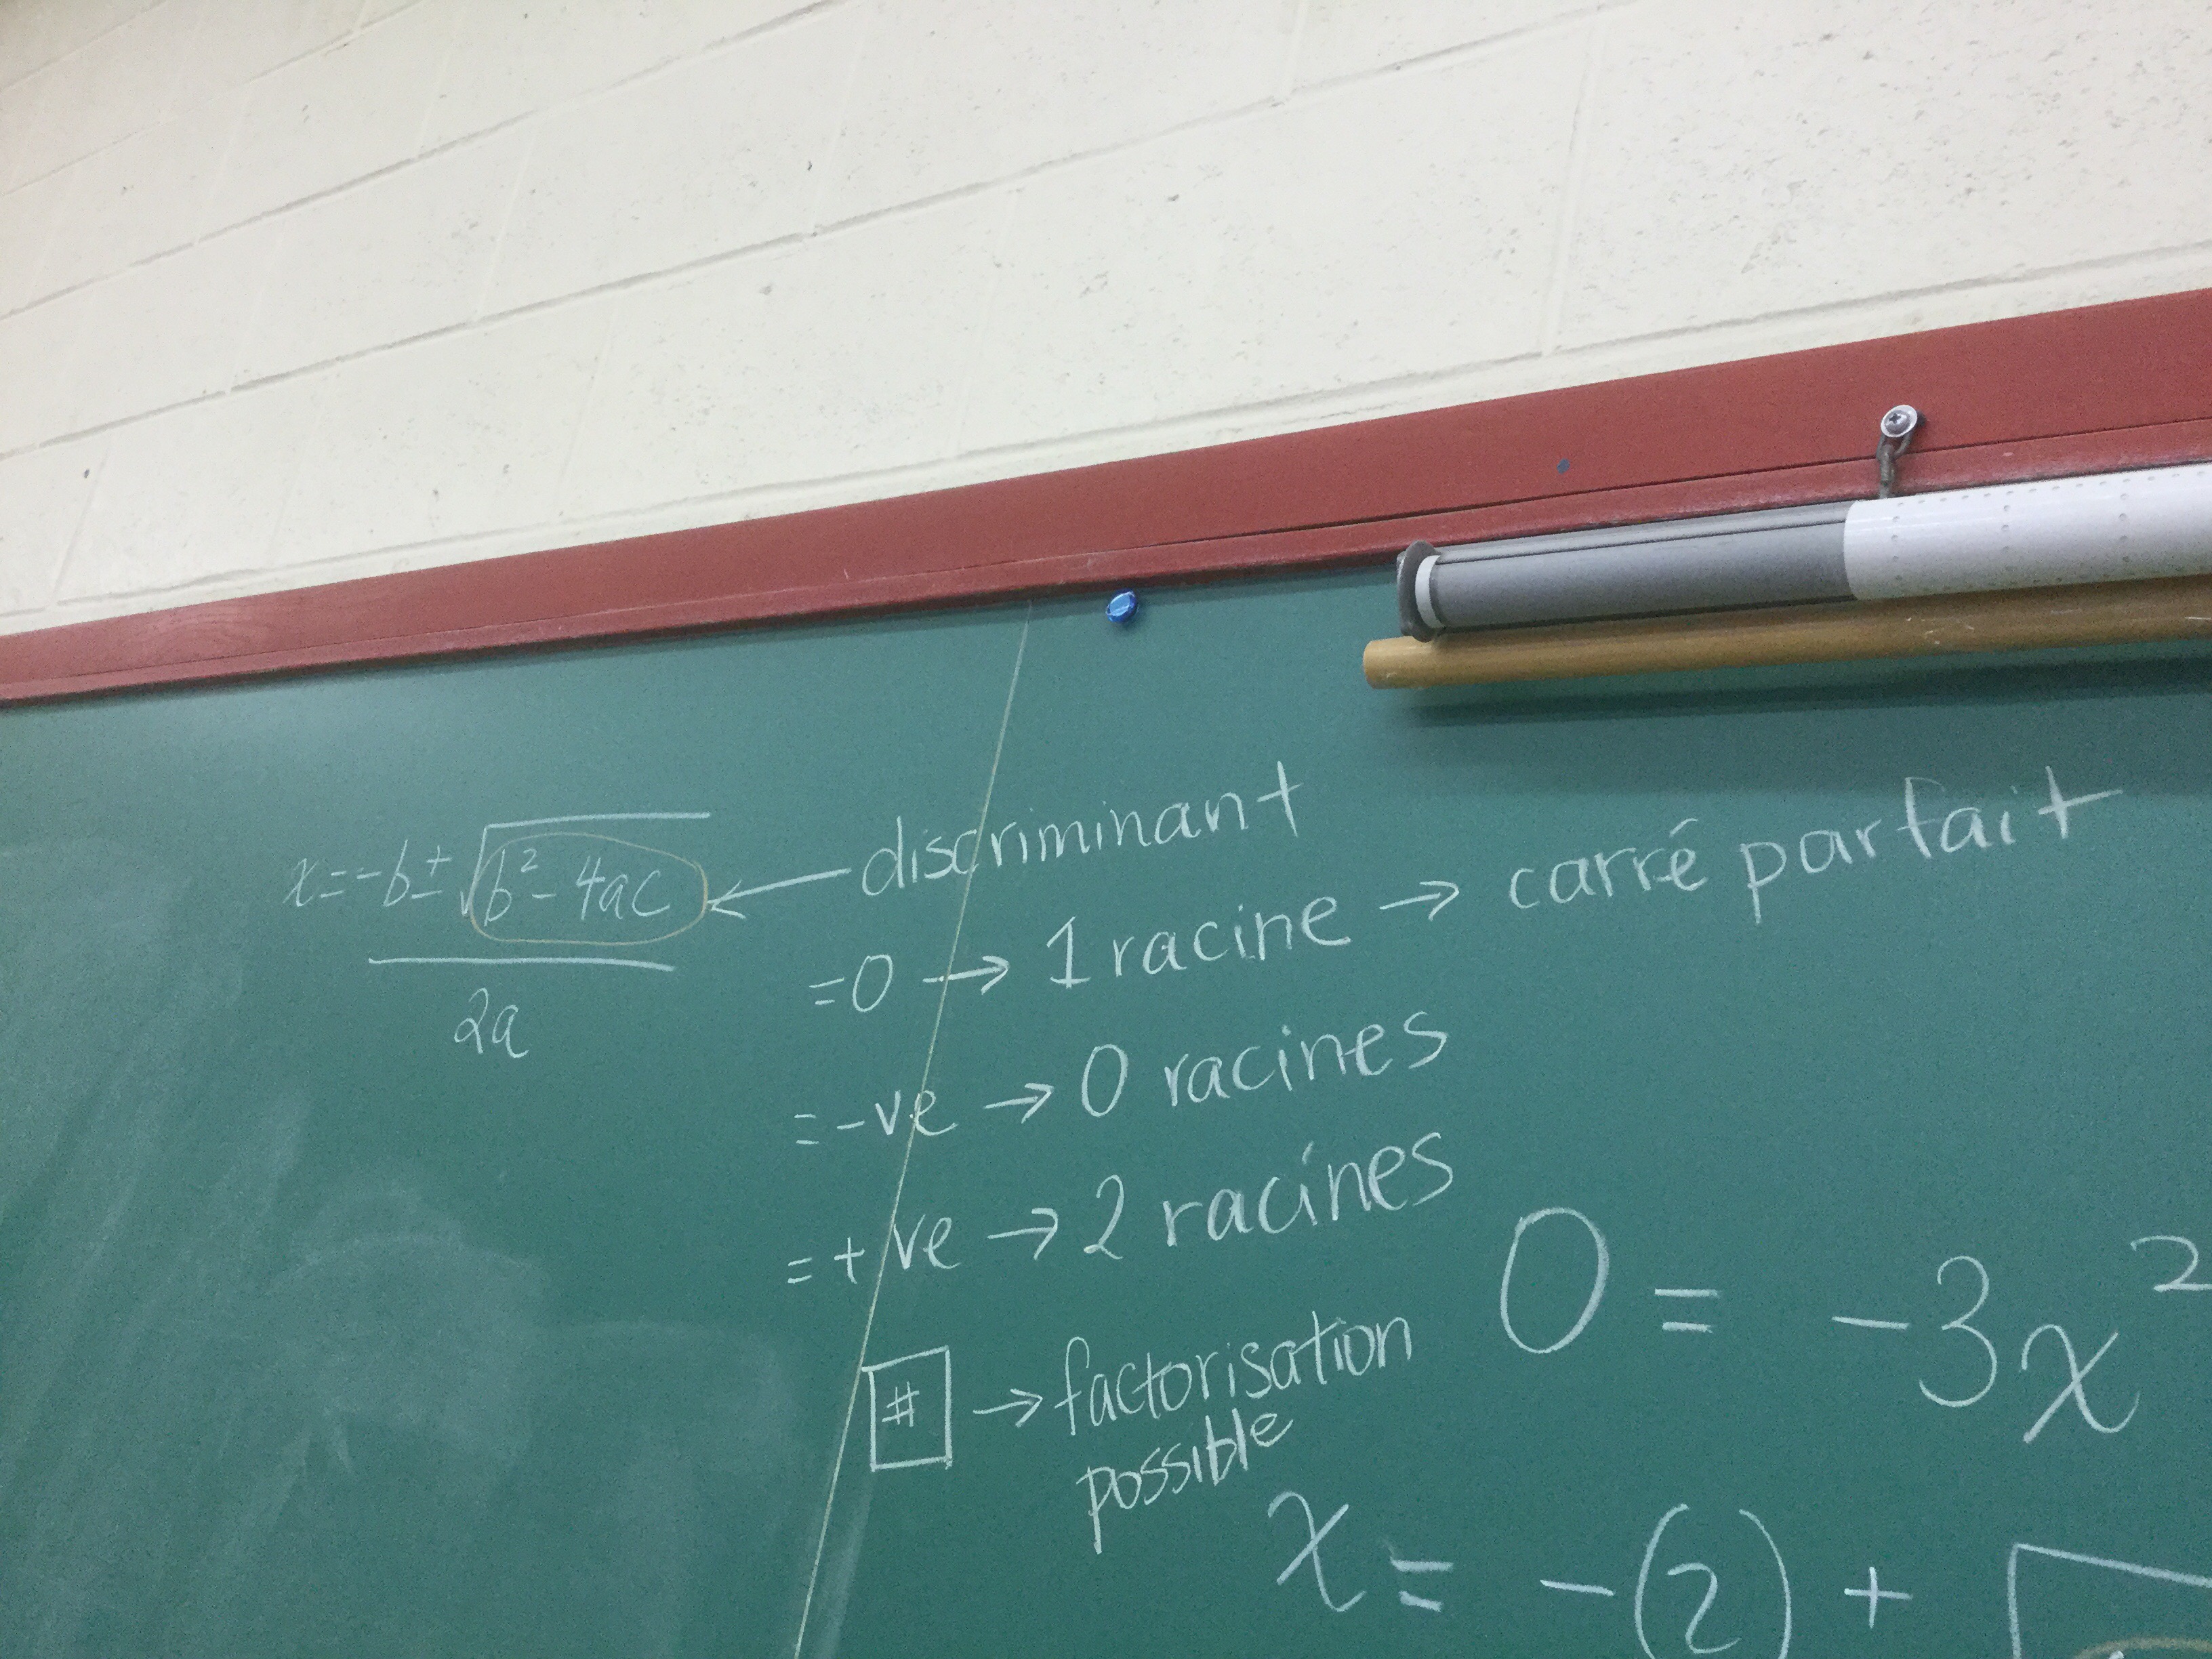 x = -b ± √b² - 4ac ← discriminant
2a
= 0 → 1 racine → carré parfait
= -ve → 0 racines
= +ve → 2 racines
# → factorisation
possible
0 = -3x²
x = -(2) +